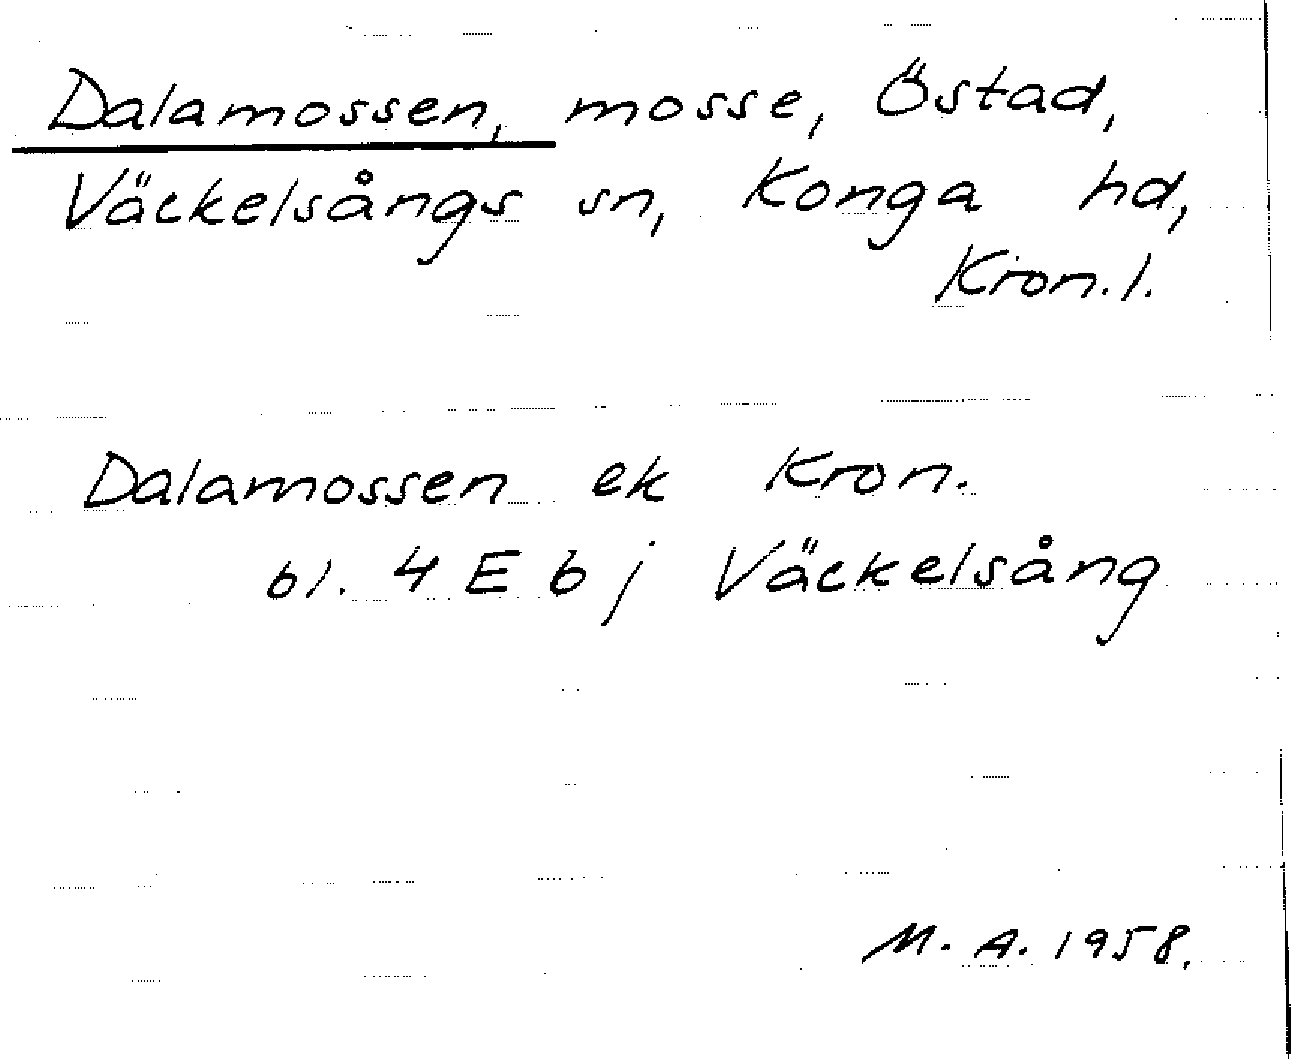 Dalamossen, mosse, Östad,
Väckelsångs sn, Konga hd,
Kron. l.
Dalamossen ek Kron.
bl. 4 E b j Väckelsång
M. A. 1958.